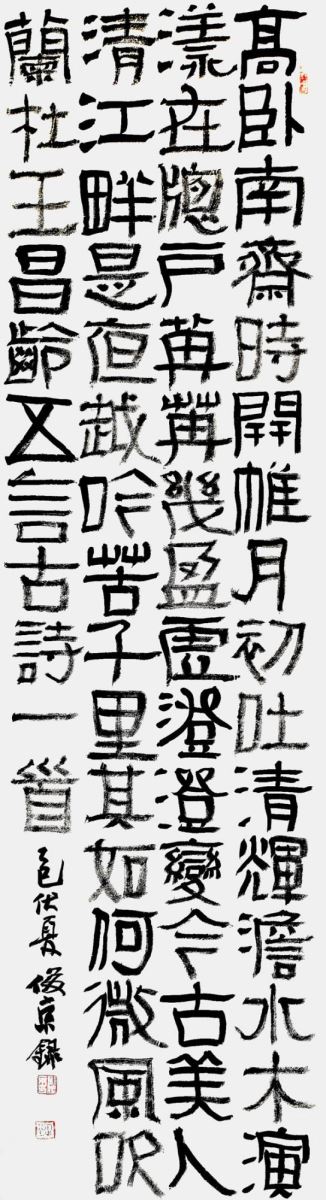 髙卧南齋時開帷月初吐清輝澹水木演
漾在牕戶苒苒幾盈虛澄澄變今古美人
清江畔是夜越吟苦千里其如何微風吹
蘭杜王昌齡五言古詩一首
伏夏俊京錄